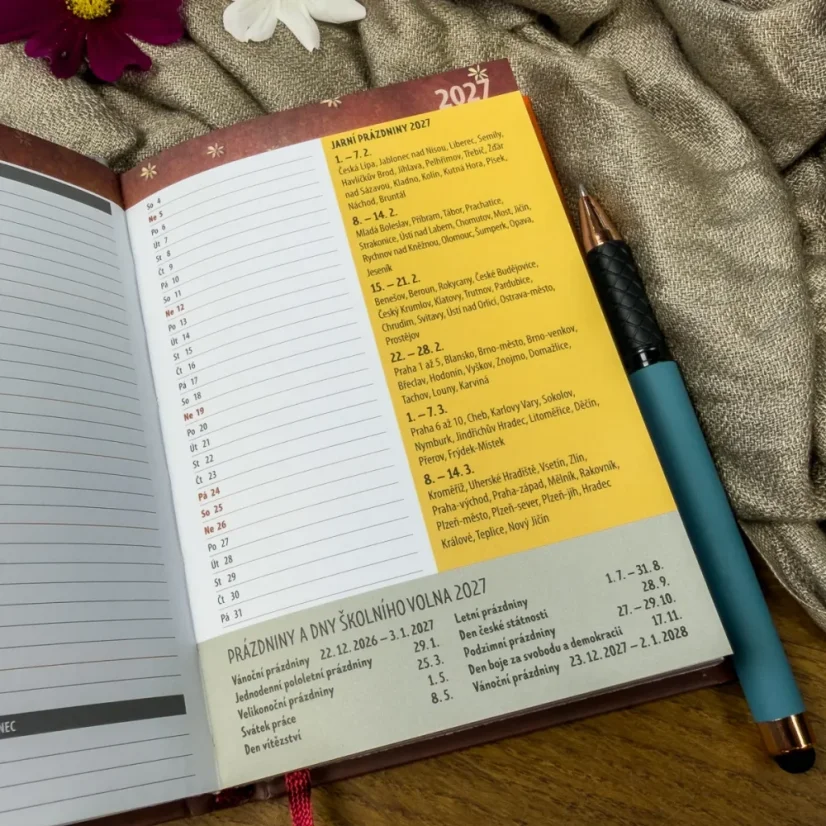 2027
So 4
Ne 5
Po 6
Út 7
St 8
Čt 9
Pá 10
So 11
Ne 12
Po 13
Út 14
St 15
Čt 16
Pá 17
So 18
Ne 19
Po 20
Út 21
St 22
Čt 23
Pá 24
So 25
Ne 26
Po 27
Út 28
St 29
Čt 30
Pá 31
JARNÍ PRÁZDNINY 2027
1. – 7. 2.
Česká Lípa, Jablonec nad Nisou, Liberec, Semily,
Havlíčkův Brod, Jihlava, Pelhřimov, Třebíč, Žďár
nad Sázavou, Kladno, Kolín, Kutná Hora, Písek,
Náchod, Bruntál
8. – 14. 2.
Mladá Boleslav, Příbram, Tábor, Prachatice,
Strakonice, Ústí nad Labem, Chomutov, Most, Jičín,
Rychnov nad Kněžnou, Olomouc, Šumperk, Opava,
Jeseník
15. – 21. 2.
Benešov, Beroun, Rokycany, České Budějovice,
Český Krumlov, Klatovy, Trutnov, Pardubice,
Chrudim, Svitavy, Ústí nad Orlicí, Ostrava-město,
Prostějov
22. – 28. 2.
Praha 1 až 5, Blansko, Brno-město, Brno-venkov,
Břeclav, Hodonín, Vyškov, Znojmo, Domažlice,
Tachov, Louny, Karviná
1. – 7. 3.
Praha 6 až 10, Cheb, Karlovy Vary, Sokolov,
Nymburk, Jindřichův Hradec, Litoměřice, Děčín,
Přerov, Frýdek-Místek
8. – 14. 3.
Kroměříž, Uherské Hradiště, Vsetín, Zlín,
Praha-východ, Praha-západ, Mělník, Rakovník,
Plzeň-město, Plzeň-sever, Plzeň-jih, Hradec
Králové, Teplice, Nový Jičín
PRÁZDNINY A DNY ŠKOLNÍHO VOLNA 2027
Vánoční prázdniny 22. 12. 2026 – 3. 1. 2027
Jednodenní pololetní prázdniny 29. 1.
Velikonoční prázdniny 25. 3.
Svátek práce 1. 5.
Den vítězství 8. 5.
Letní prázdniny 1. 7. – 31. 8.
Den české státnosti 28. 9.
Podzimní prázdniny 27. – 29. 10.
Den boje za svobodu a demokracii 17. 11.
Vánoční prázdniny 23. 12. 2027 – 2. 1. 2028